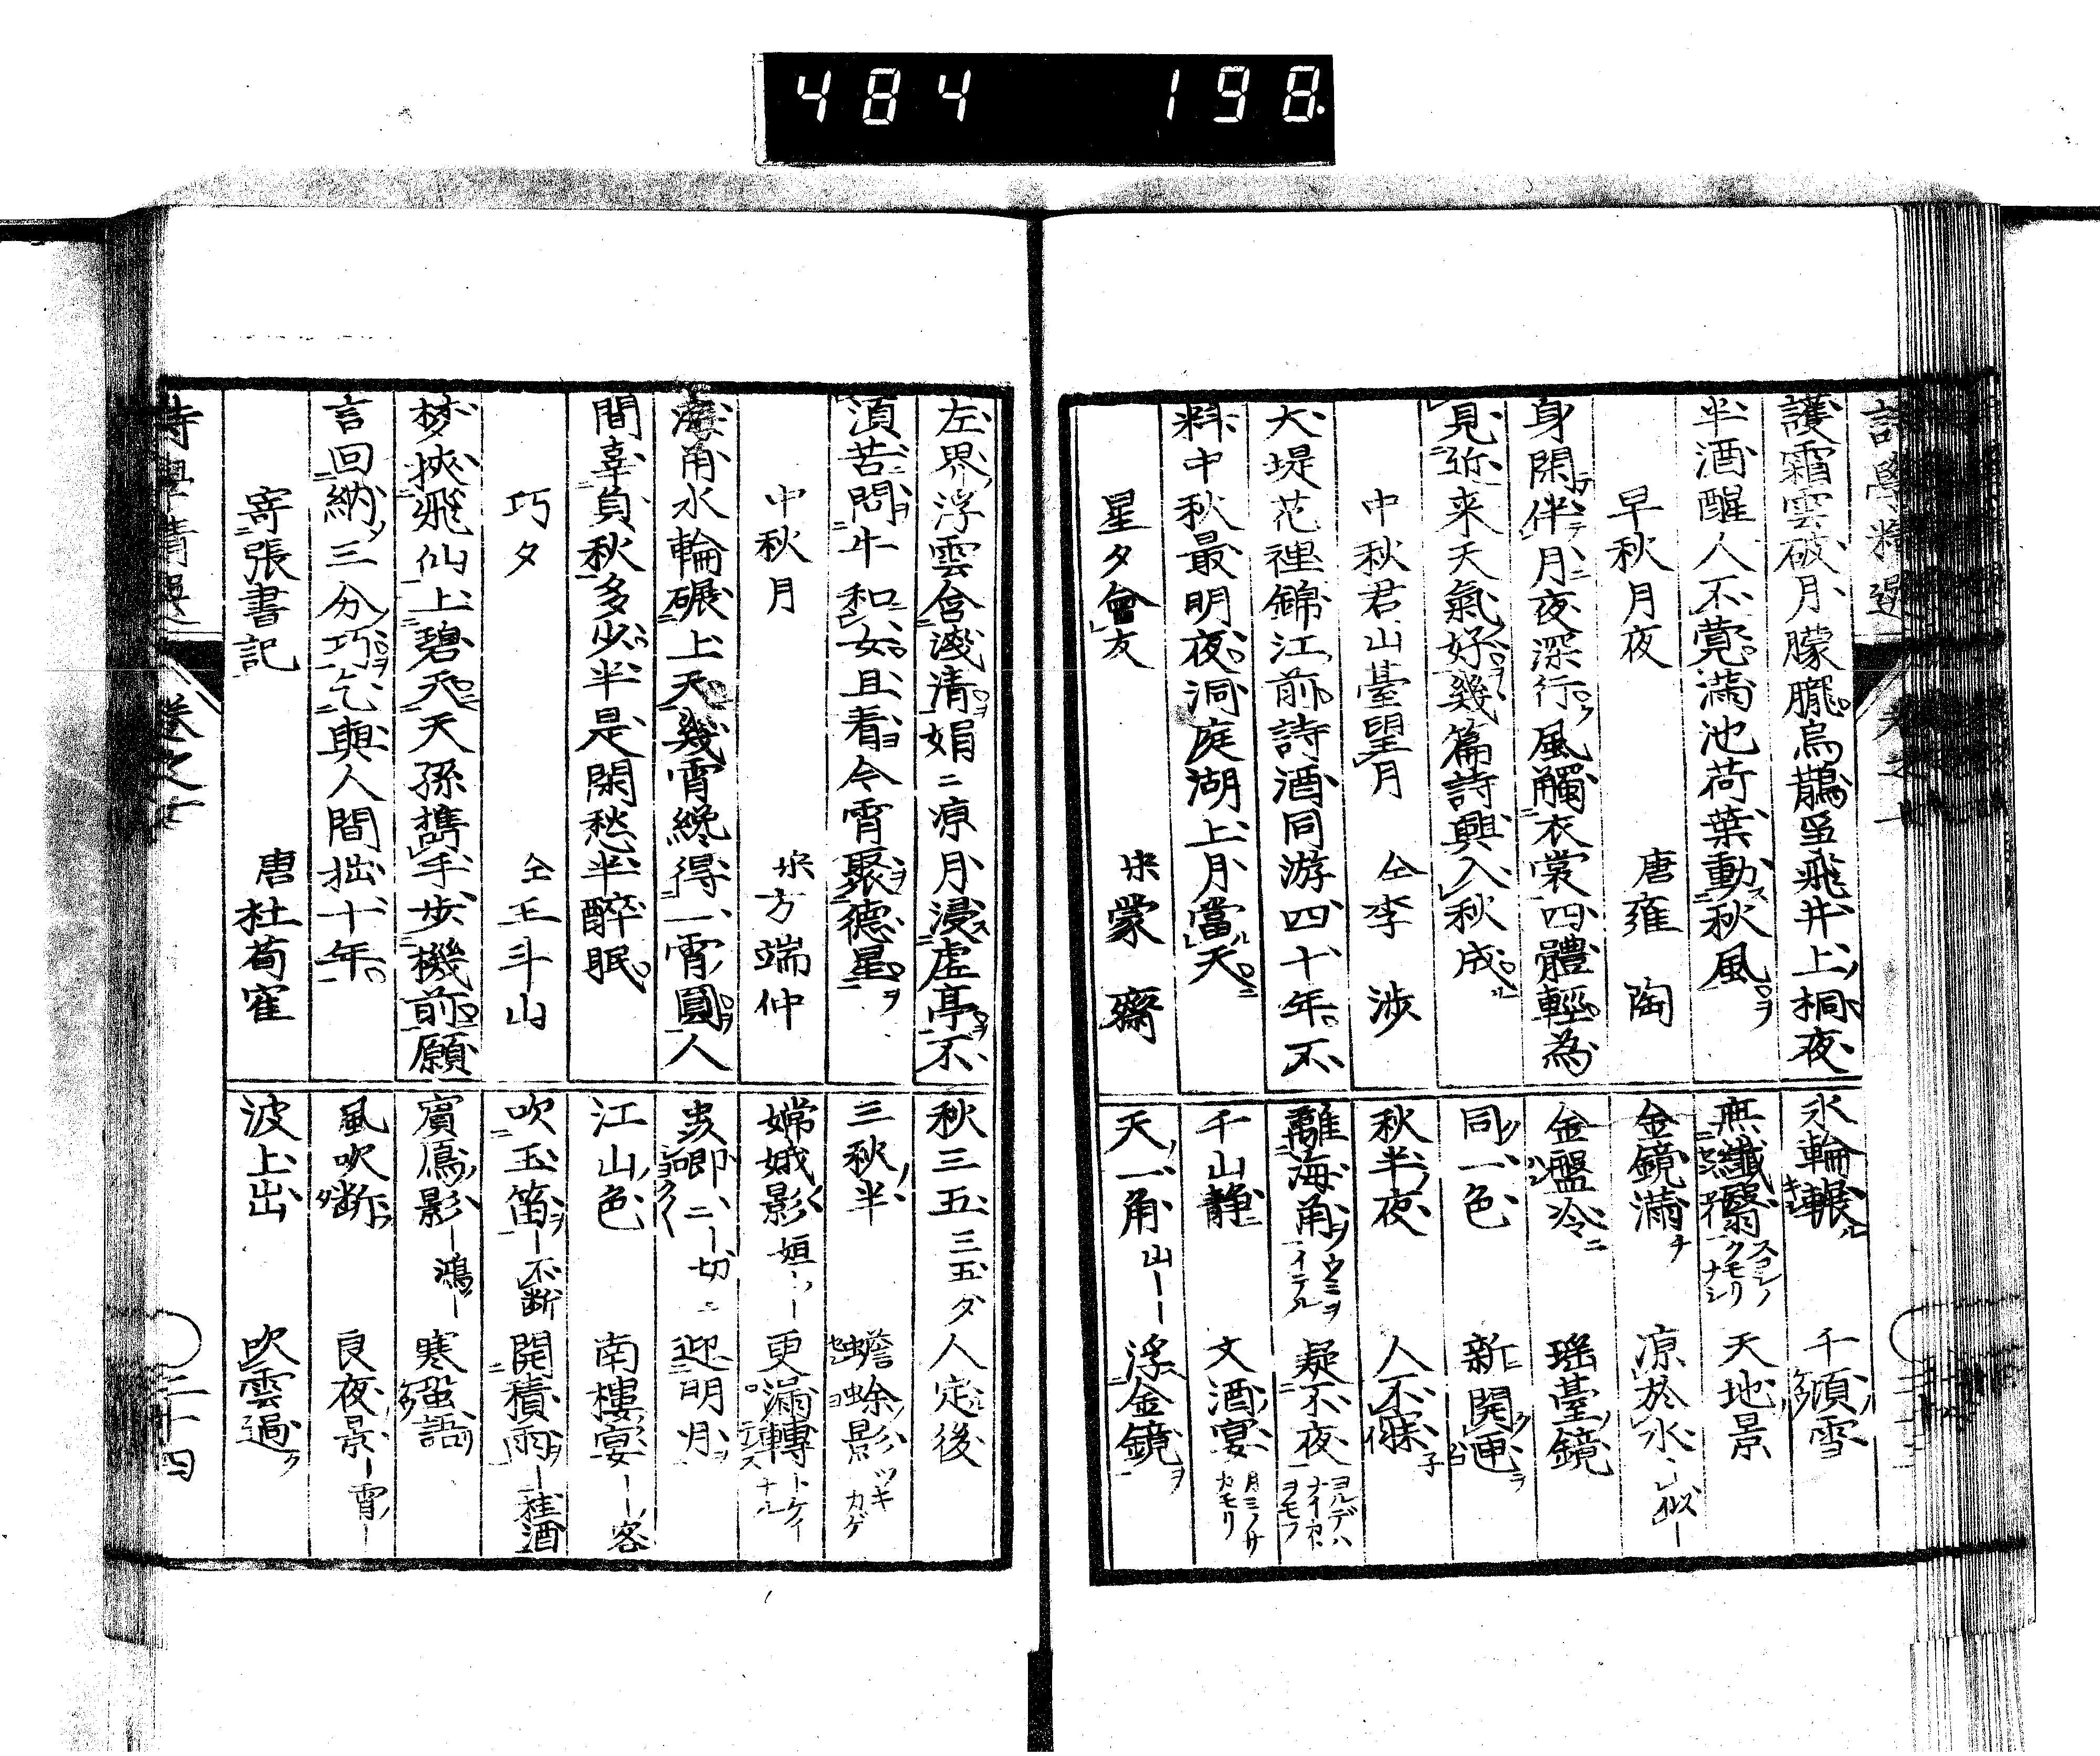 484 198
護霜雲破月朦朧烏鵲爭飛井上桐夜
半酒醒人不覚滿池荷葉動秋風
早秋月夜 唐雍陶
身閑伴月夜深行風觸衣裳四體輕為
見近来天氣好幾篇詩興入秋成
中秋君山臺望月 仝李涉
大堤花裡錦江前詩酒同游四十年不
料中秋最明夜洞庭湖上月當天
星夕會友 宋蒙齋
氷輪輾 千頃雪
無纖翳 スコシノクモリナシ 天地景
金鏡滿 凉於水
金盤冷 瑶臺鏡
同一色 新開匣
秋半夜 人不寐
離海角 ウミヲイテル 疑不夜 ヨルデハナイカトヲモフ
千山静 文酒宴
天一角 山—— 浮金鏡
左界浮雲含淺清娟〻凉月浸虚亭不
須苦問牛和女且看今宵聚德星
中秋月 宋方端仲
海角氷輪碾上天幾宵纔得一宵圓人
間辜負秋多少半是閑愁半醉眠
巧夕 仝王斗山
梦挾飛仙上碧天天孫携手步機前願
言回納三分巧乞與人間拙十年
寄張書記 唐杜荀隺
秋三五 三五夕 人定後
三秋半 蟾蜍影 ツキカゲ
嫦娥影 姮—— 更漏轉 トケイ
蛩喞〻 —切〻 迎明月
江山色 南樓宴 ——客
吹玉笛 —不断 開積雨 —桂酒
賓鴈影 —鴻— 寒蛩語
風吹断 良夜景 —宵—
波上出 吹雲過
詩學精選 卷之
二十四